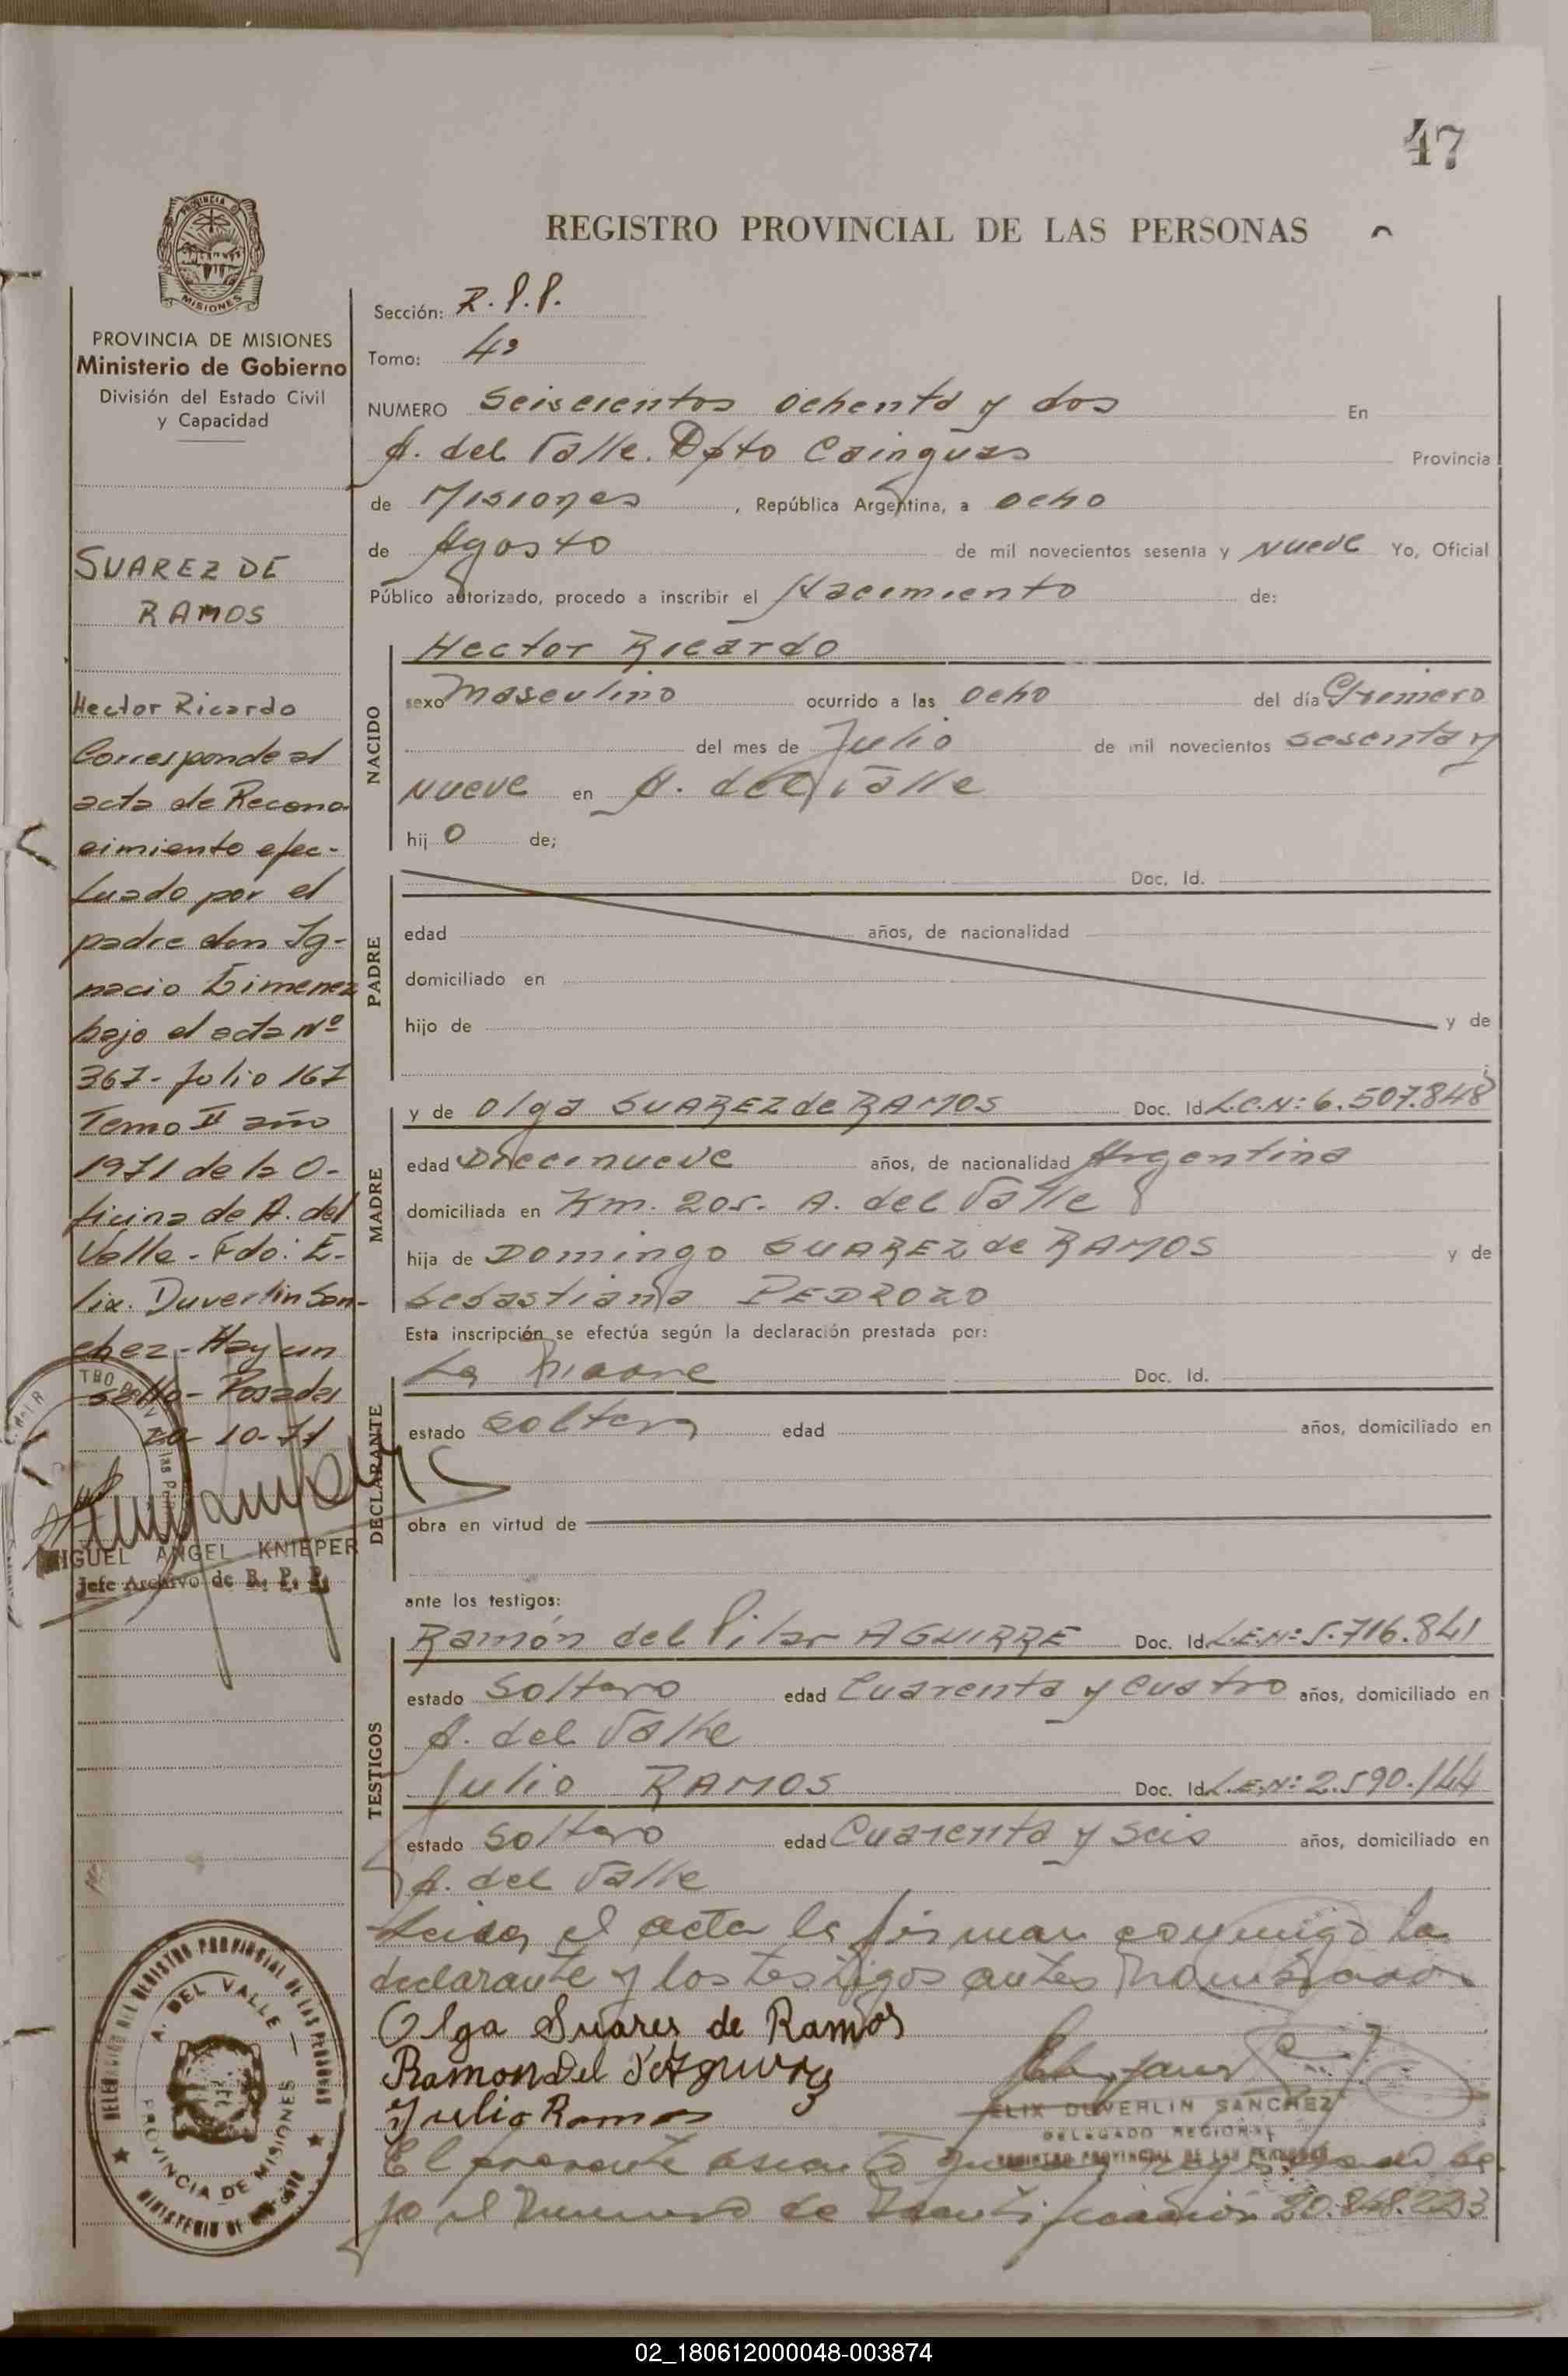 47
REGISTRO PROVINCIAL DE LAS PERSONAS
PROVINCIA DE MISIONES
Ministerio de Gobierno
División del Estado Civil
y Capacidad
SUAREZ DE
RAMOS
Hector Ricardo
Corresponde al
acta de Recono
cimiento efec-
tuado por el
padre don Ig-
nacio Gimenez
bajo el acta Nº
367 - folio 167
Tomo II año
1971 de la O-
ficina de A. del
Valle - Fdo: E-
lix. Duverlin San-
chez - Hay un
sello - Posadas
20-10-71
MIGUEL ANGEL KNIEPER
Jefe Archivo de R. P. P.
Sección: R.P.P.
Tomo: 4º
NUMERO Seiscientos ochenta y dos En
A. del Valle. Dpto Cainguas Provincia
de Misiones, República Argentina, a ocho
de Agosto de mil novecientos sesenta y nueve Yo, Oficial
Público autorizado, procedo a inscribir el Nacimiento de:
NACIDO
Hector Ricardo
sexo Masculino ocurrido a las ocho del día Primero
del mes de Julio de mil novecientos sesenta y
nueve en A. del Valle
hijo de;
PADRE
Doc. Id.
edad años, de nacionalidad
domiciliado en
hijo de y de
MADRE
y de Olga SUAREZ de RAMOS Doc. Id L.C.Nº: 6.507.848
edad Diecinueve años, de nacionalidad Argentina
domiciliada en Km. 205. A. del Valle
hija de Domingo SUAREZ de RAMOS y de
Sebastiana PEDROZO
Esta inscripción se efectúa según la declaración prestada por:
DECLARANTE
La Madre Doc. Id.
estado soltera edad años, domiciliado en
obra en virtud de
ante los testigos:
TESTIGOS
Ramón del Pilar AGUIRRE Doc. Id L.E.Nº: 5.716.841
estado Soltero edad Cuarenta y cuatro años, domiciliado en
A. del Valle
Julio RAMOS Doc. Id L.E.Nº: 2.590.144
estado Soltero edad Cuarenta y seis años, domiciliado en
A. del Valle
Leida el acta la firman conmigo la
declarante y los testigos antes nombrados
Olga Suares de Ramos
Ramon Del P Aguirre
Julio Ramos
ELIX DUVERLIN SANCHEZ
DELEGADO REGIONAL
REGISTRO PROVINCIAL DE LAS PERSONAS
El presente asiento queda registrado ba
jo el Numero de Identificación 20.848.223
DELEGACION DEL REGISTRO PROVINCIAL DE LAS PERSONAS
A. DEL VALLE
PROVINCIA DE MISIONES
MINISTERIO DE GOBIERNO
02_180612000048-003874